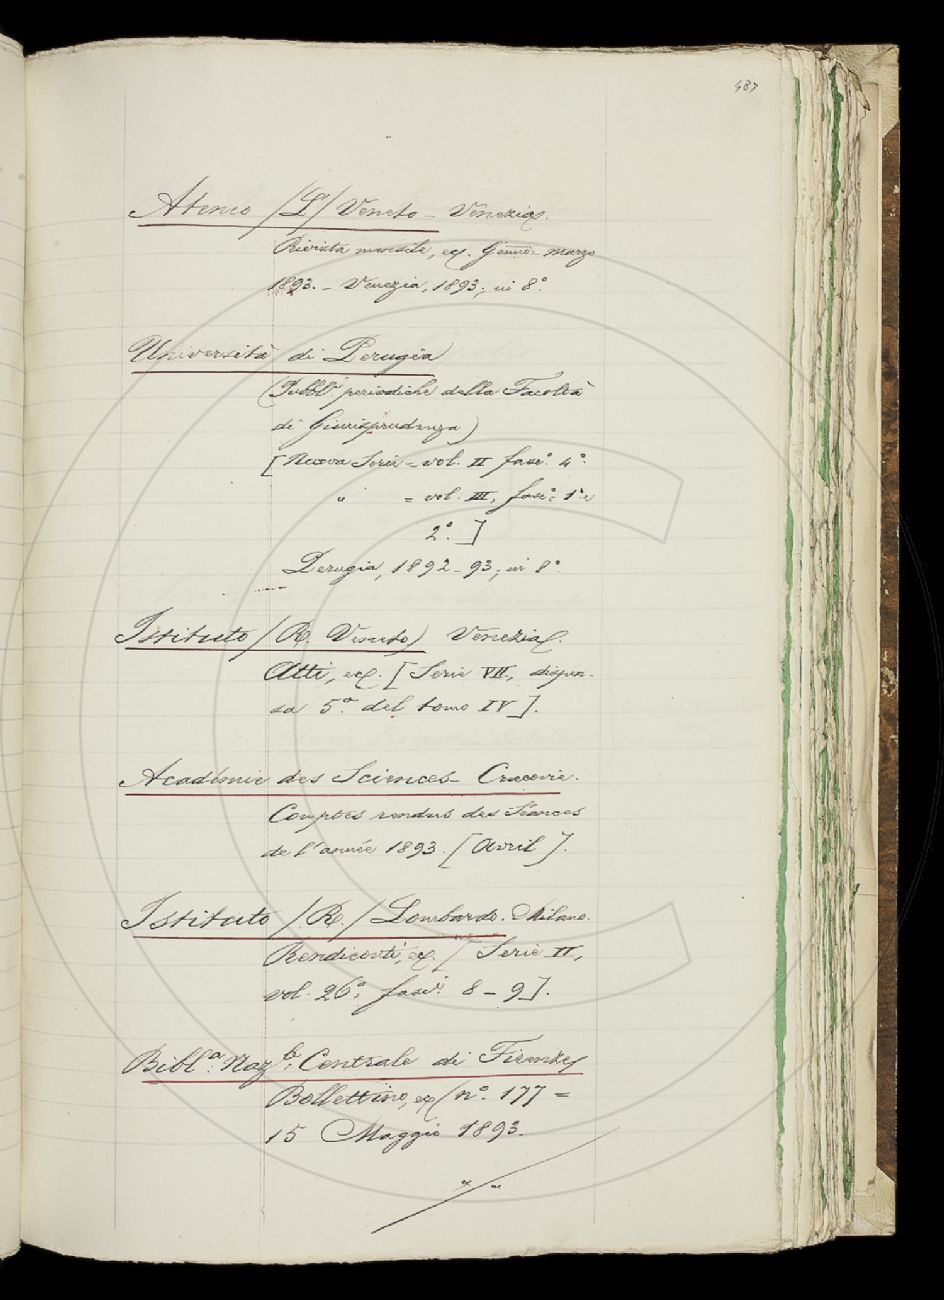 487
Ateneo /L'/ Veneto - Venezia.
Rivista mensile, ecc. Genn.- Marzo
1893. - Venezia, 1893; in 8.°
Università di Perugia
(Pubbl. periodiche della Facoltà
di Giurisprudenza)
[Nuova Serie - vol. II fasc. 4.°
" = vol. III, fasc. 1.° e
2.°]
Perugia, 1892-93; in 8.°
Istituto /R. Veneto) Venezia.
Atti, ecc. [Serie VII, dispen-
sa 5.a del tomo IV].
Académie des Sciences - Cracovie.
Comptes rendus des Séances
de l'année 1893. [Avril].
Istituto /R./ Lombardo. Milano.
Rendiconti, ecc. [Serie II,
vol. 26.°, fasc. 8-9].
Bibl.a Naz.le Centrale di Firenze
Bollettino, ecc (n.° 177 =
15 Maggio 1893.